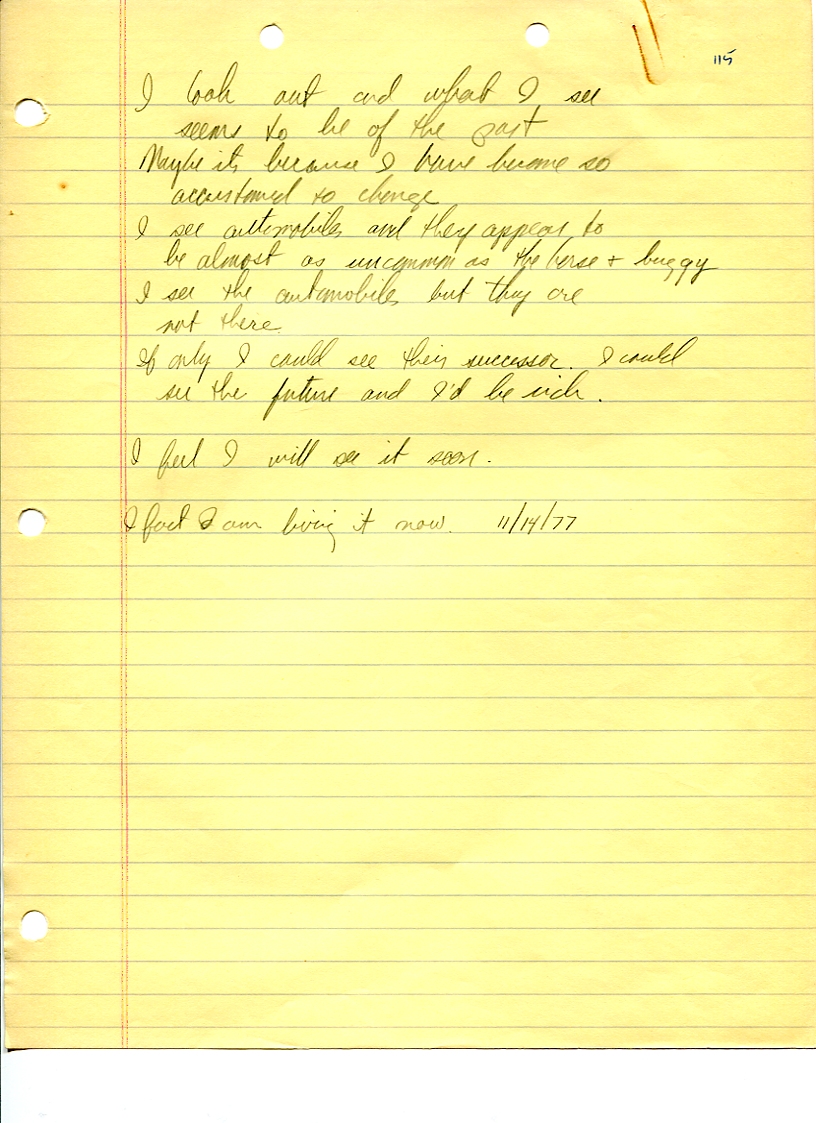 115
I look out and what I see
seems to be of the past
Maybe its because I have become so
accustomed to change
I see automobiles and they appear to
be almost as uncommon as the horse + buggy
I see the automobiles but they are
not there
If only I could see their successor. I could
see the future and I'd be rich.
I feel I will see it soon.
I fact I am living it now. 11/14/77